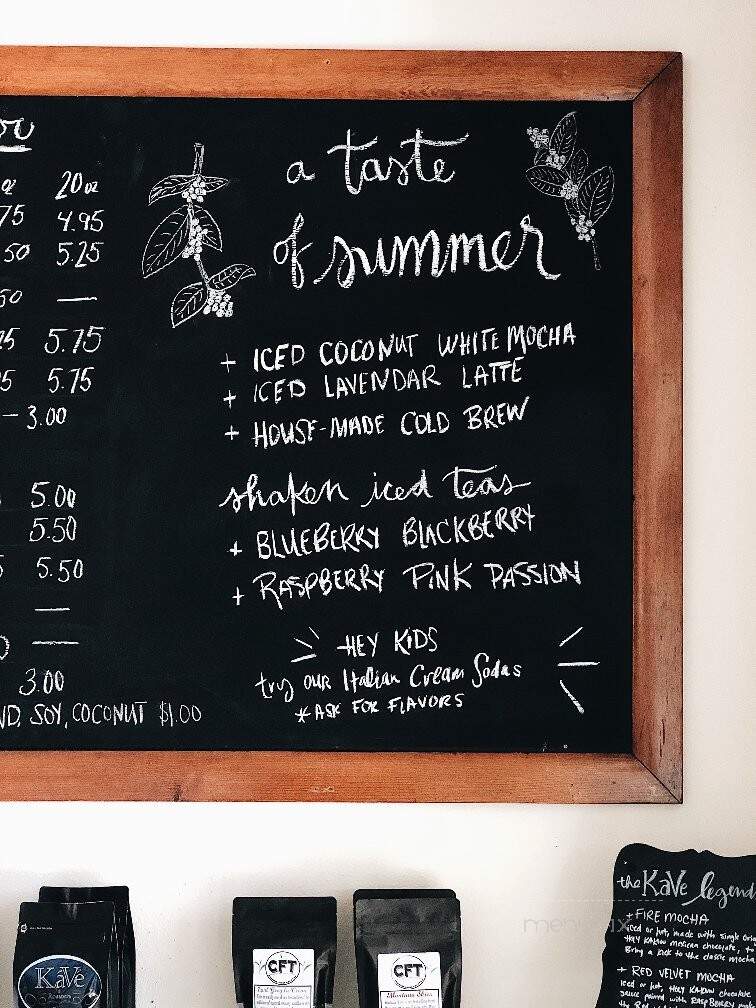 oz 20oz
75 4.95
50 5.25
50 —
5.75
5 5.75
— 3.00
5.00
5.50
5.50
—
—
3.00
ND, SOY, COCONUT $1.00
a taste
of summer
+ ICED COCONUT WHITE MOCHA
+ ICED LAVENDAR LATTE
+ HOUSE-MADE COLD BREW
shaken iced teas
+ BLUEBERRY BLACKBERRY
+ RASPBERRY PINK PASSION
HEY KIDS
try our Italian Cream Sodas
*ASK FOR FLAVORS
KaVe
ROASTERS
CFT
Earl Grey la Creme
CFT
the KaVe legend
+ FIRE MOCHA
iced or hot, made with single orig
HEY KADOW mexican chocolate, to
Bring a kick to the classic mocha
+ RED VELVET MOCHA
Iced or hot, HEY KADOW chocolate
sauce RASPBERRY